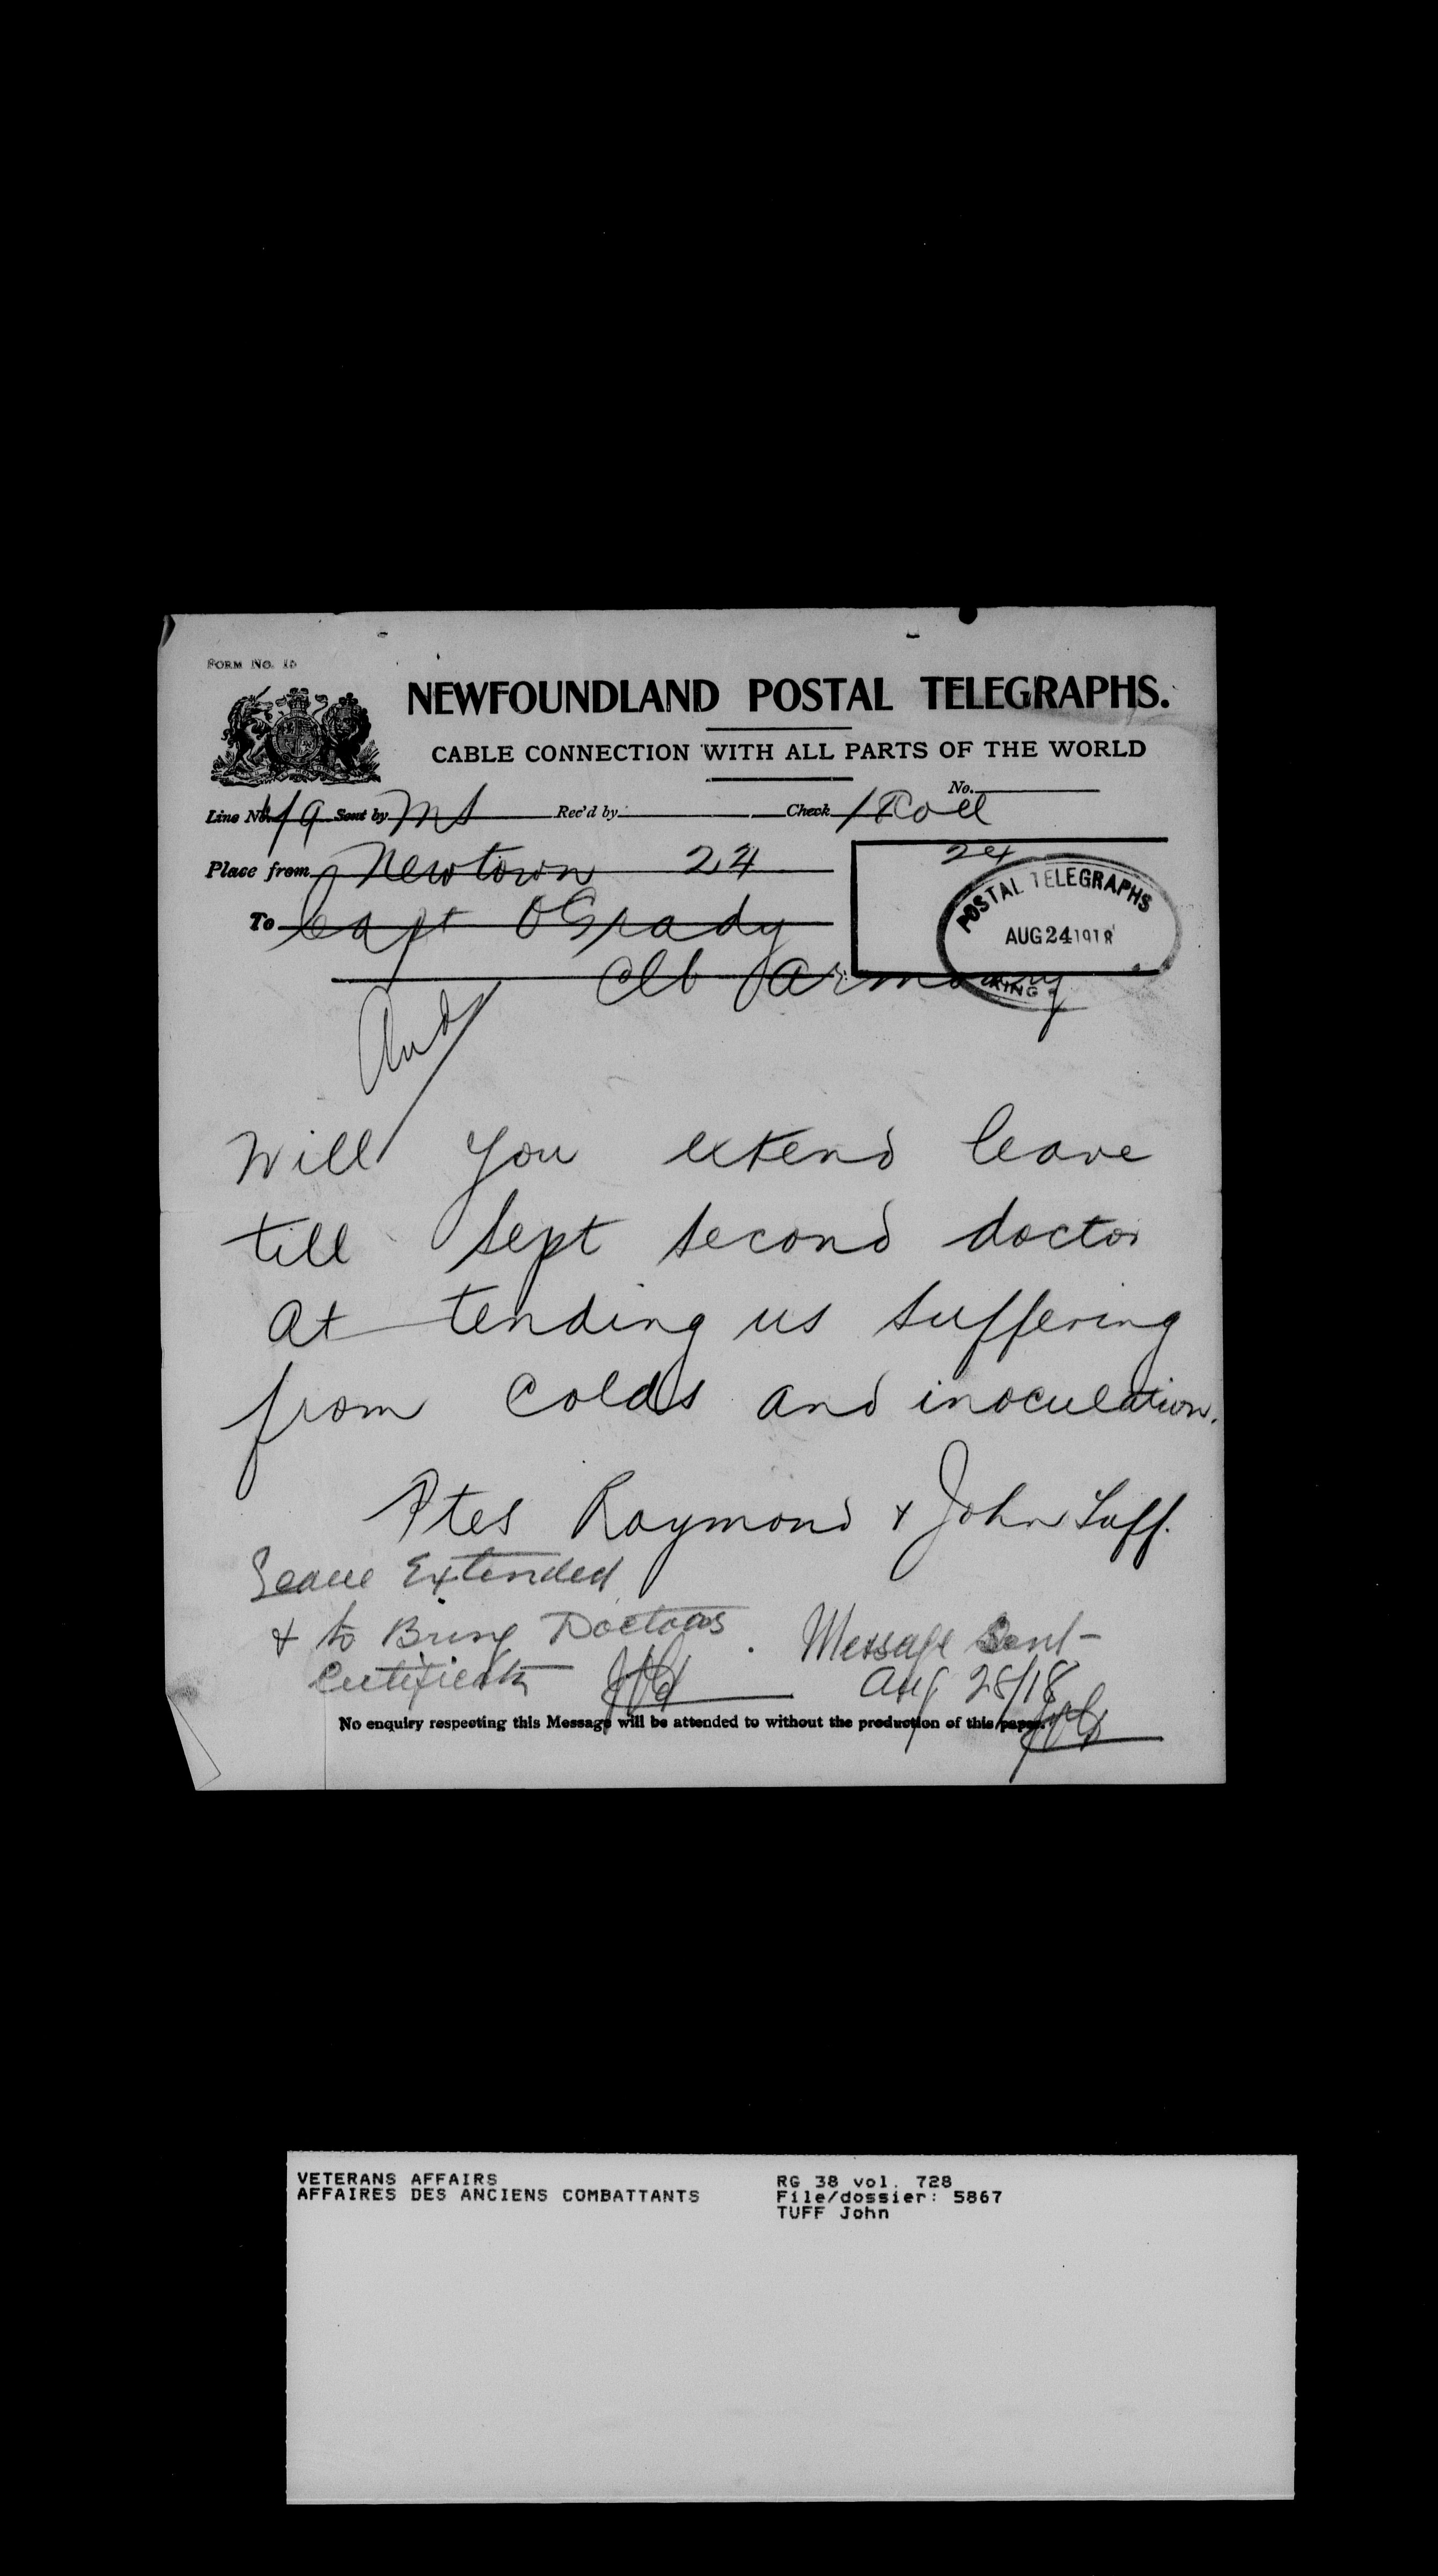 FORM NO. 15
NEWFOUNDLAND POSTAL TELEGRAPHS.
CABLE CONNECTION WITH ALL PARTS OF THE WORLD
No.
Line No. 19 Sent by MS Rec'd by Check Coll
Place from Newtown 24
24
To Capt OGrady
CLB Armoury
POSTAL TELEGRAPHS
AUG 24 1918
Ansd
Will you extend leave
till Sept second doctor
at tending us suffering
from colds and inoculation.
Ptes Raymond & John Tuff.
Leave Extended
& to Bring Doctors
Certificate
Message Sent
Aug 28/18
No enquiry respecting this Message will be attended to without the production of this paper.
VETERANS AFFAIRS
AFFAIRES DES ANCIENS COMBATTANTS
RG 38 vol. 728
File/dossier: 5867
TUFF John